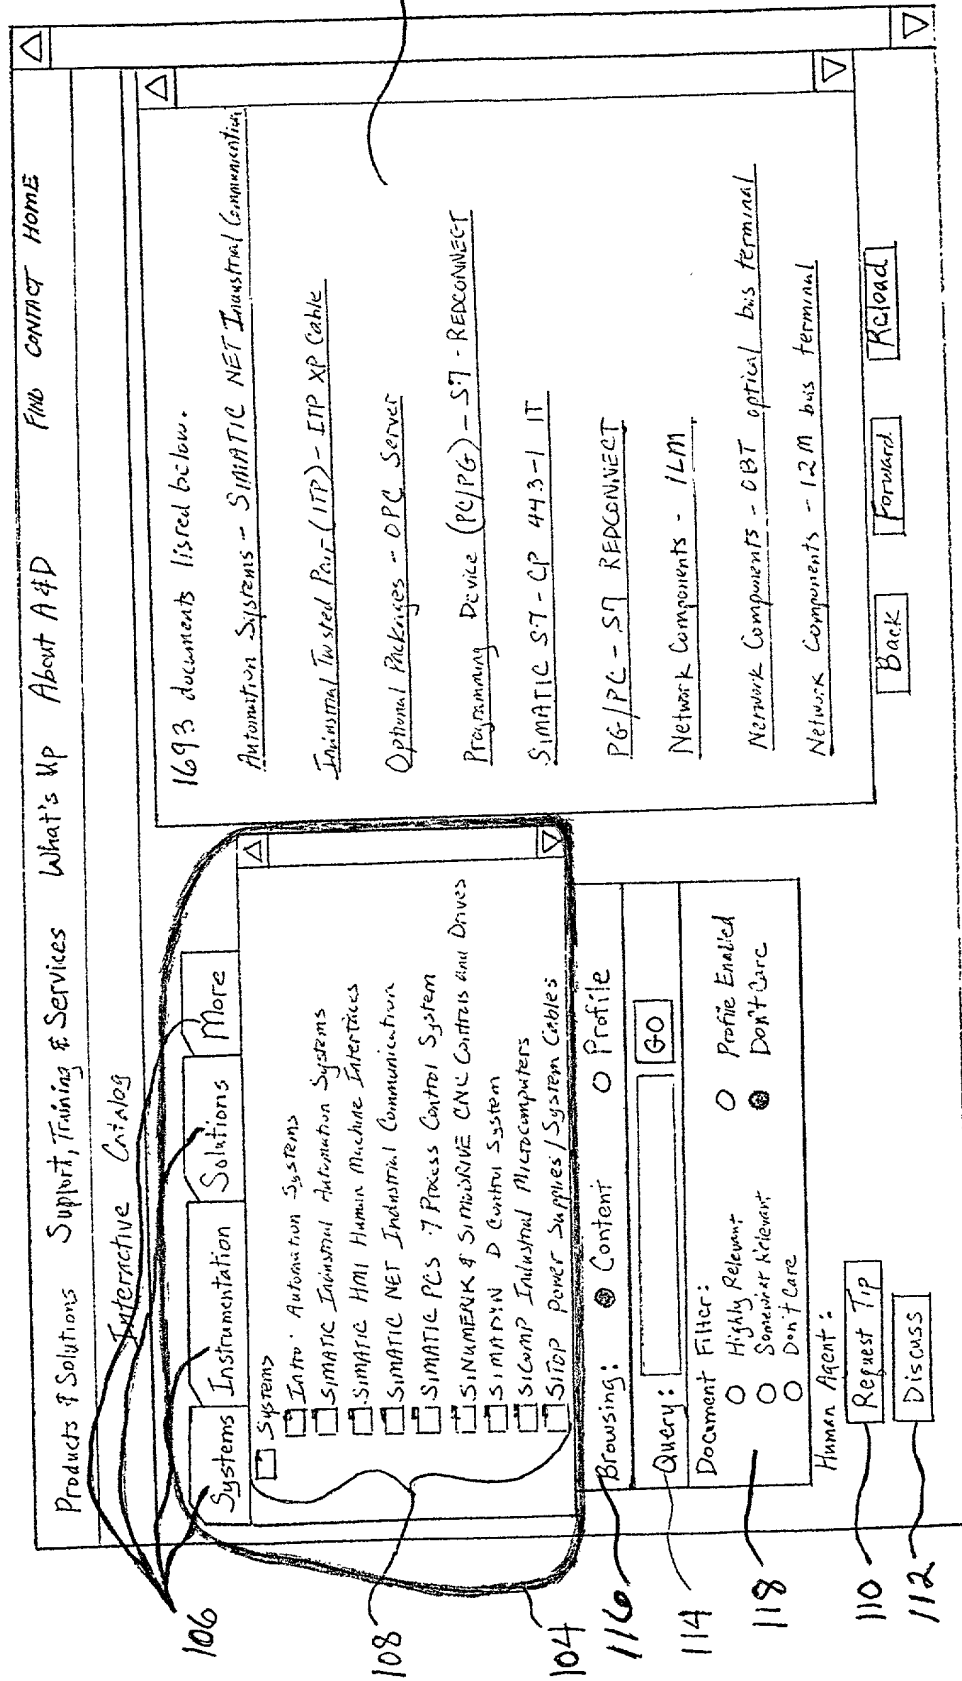 Products & Solutions Support, Training & Services What's Up About A&D FIND CONTACT HOME
Interactive Catalog
Systems Instrumentation Solutions More
Systems
Intro. Automation Systems
SIMATIC Industrial Automation Systems
SIMATIC HMI Human Machine Interfaces
SIMATIC NET Industrial Communication
SIMATIC PCS 7 Process Control System
SINUMERIK & SIMODRIVE CNC Controls and Drives
SIMADYN D Control System
SICOMP Industrial Microcomputers
SITOP Power Supplies/System Cables
Browsing: Content Profile
Query: GO
Document Filter:
Highly Relevant Profile Enabled
Somewhat Relevant Don't Care
Don't Care
Human Agent:
Request Tip
Discuss
1693 documents listed below.
Automation Systems - SIMATIC NET Industrial Communication
Industrial Twisted Pair - (ITP) - ITP XP Cable
Optional Packages - OPC Server
Programming Device (PC/PG) - S7 - REDCONNECT
SIMATIC S7 - CP 443-1 IT
PG/PC - S7 REDCONNECT
Network Components - ILM
Network Components - OBT optical bus terminal
Network Components - 12M bus terminal
Back Forward Reload
106
108
104
116
114
118
110
112